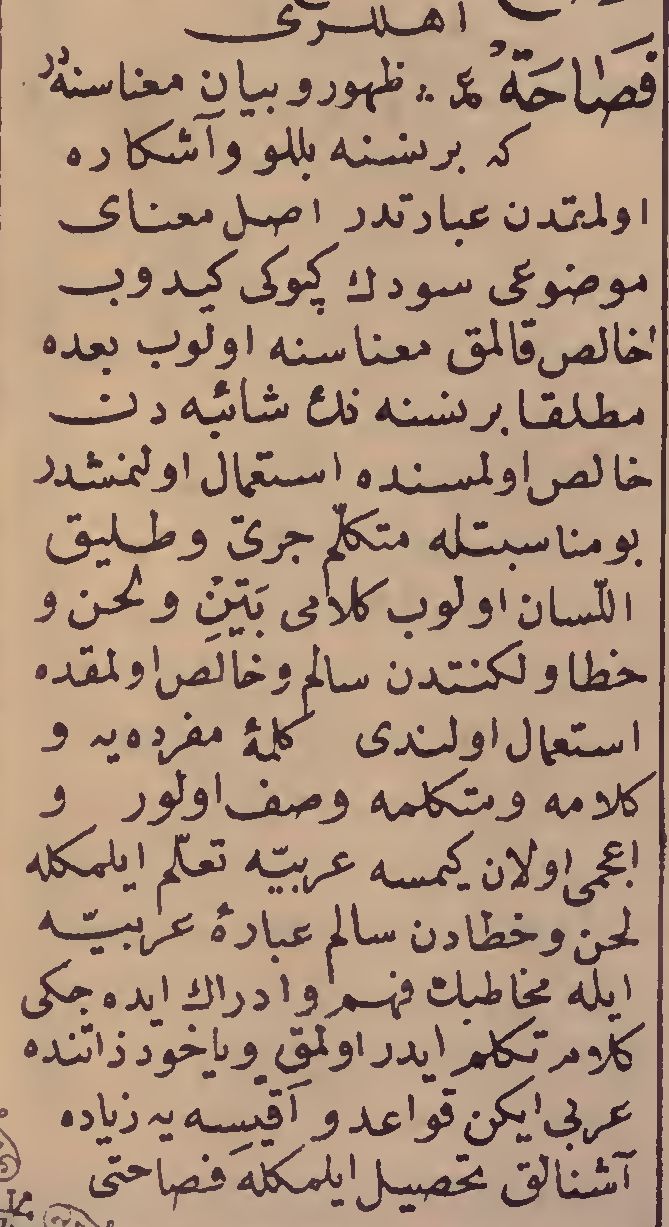 اهللری
فَصَاحَةٌ ع ظهور و بیان معناسنه در
که برنسنه بللو و آشکاره
اولمقدن عبارتدر اصل معنای
موضوعی سودك کپوکی کیدوب
خالص قالمق معناسنه اولوب بعده
مطلقا برنسنه نك شائبه دن
خالص اولمسنده استعمال اولنمشدر
بو مناسبتله متکلّم جرئ و طلیق
اللّسان اولوب کلامی بَیِّنِ و لحن و
خطا و لکنتدن سالم و خالص اولمقده
استعمال اولندی کلمهٔ مفرده یه و
کلامه و متکلمه وصف اولور و
اعجمی اولان کیمسه عربیّه تعلّم ایلمکله
لحن و خطادن سالم عبارهٔ عربیّه
ایله مخاطبك فهم و ادراك ایده جکی
کلام تکلم ایدر اولمق و یاخود ذاتنده
عربی ایکن قواعد و اَقیِسه یه زیاده
آشنالق تحصیل ایلمکله فصاحتی